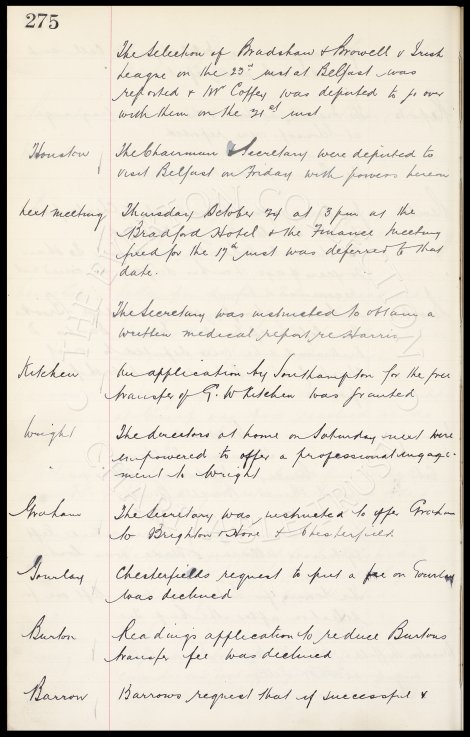 275
The Selection of Bradshaw & Browell v Irish
League on the 23rd inst at Belfast was
reported & Mr Coffey was deputed to go over
with them on the 21st inst
Houston The Chairman & Secretary were deputed to
visit Belfast on Friday with powers herein
next meeting Thursday October 24 at 3 pm at the
Bradford Hotel & the Finance Meeting
fixed for the 17th inst was deferred to that
date.
The Secretary was instructed to obtain a
written medical report re Harris
Kitchen An application by Southampton for the free
transfer of G. W Kitchen was granted
Wright The directors at home on Saturday next were
empowered to offer a professional engage-
ment to Wright
Graham The Secretary was instructed to offer Graham
to Brighton & Hove & Chesterfield
Gourlay Chesterfields request to put a fee on Gourlay
was declined
Burton Readings application to reduce Burtons
transfer fee was declined
Barrow Barrows request that if successful &